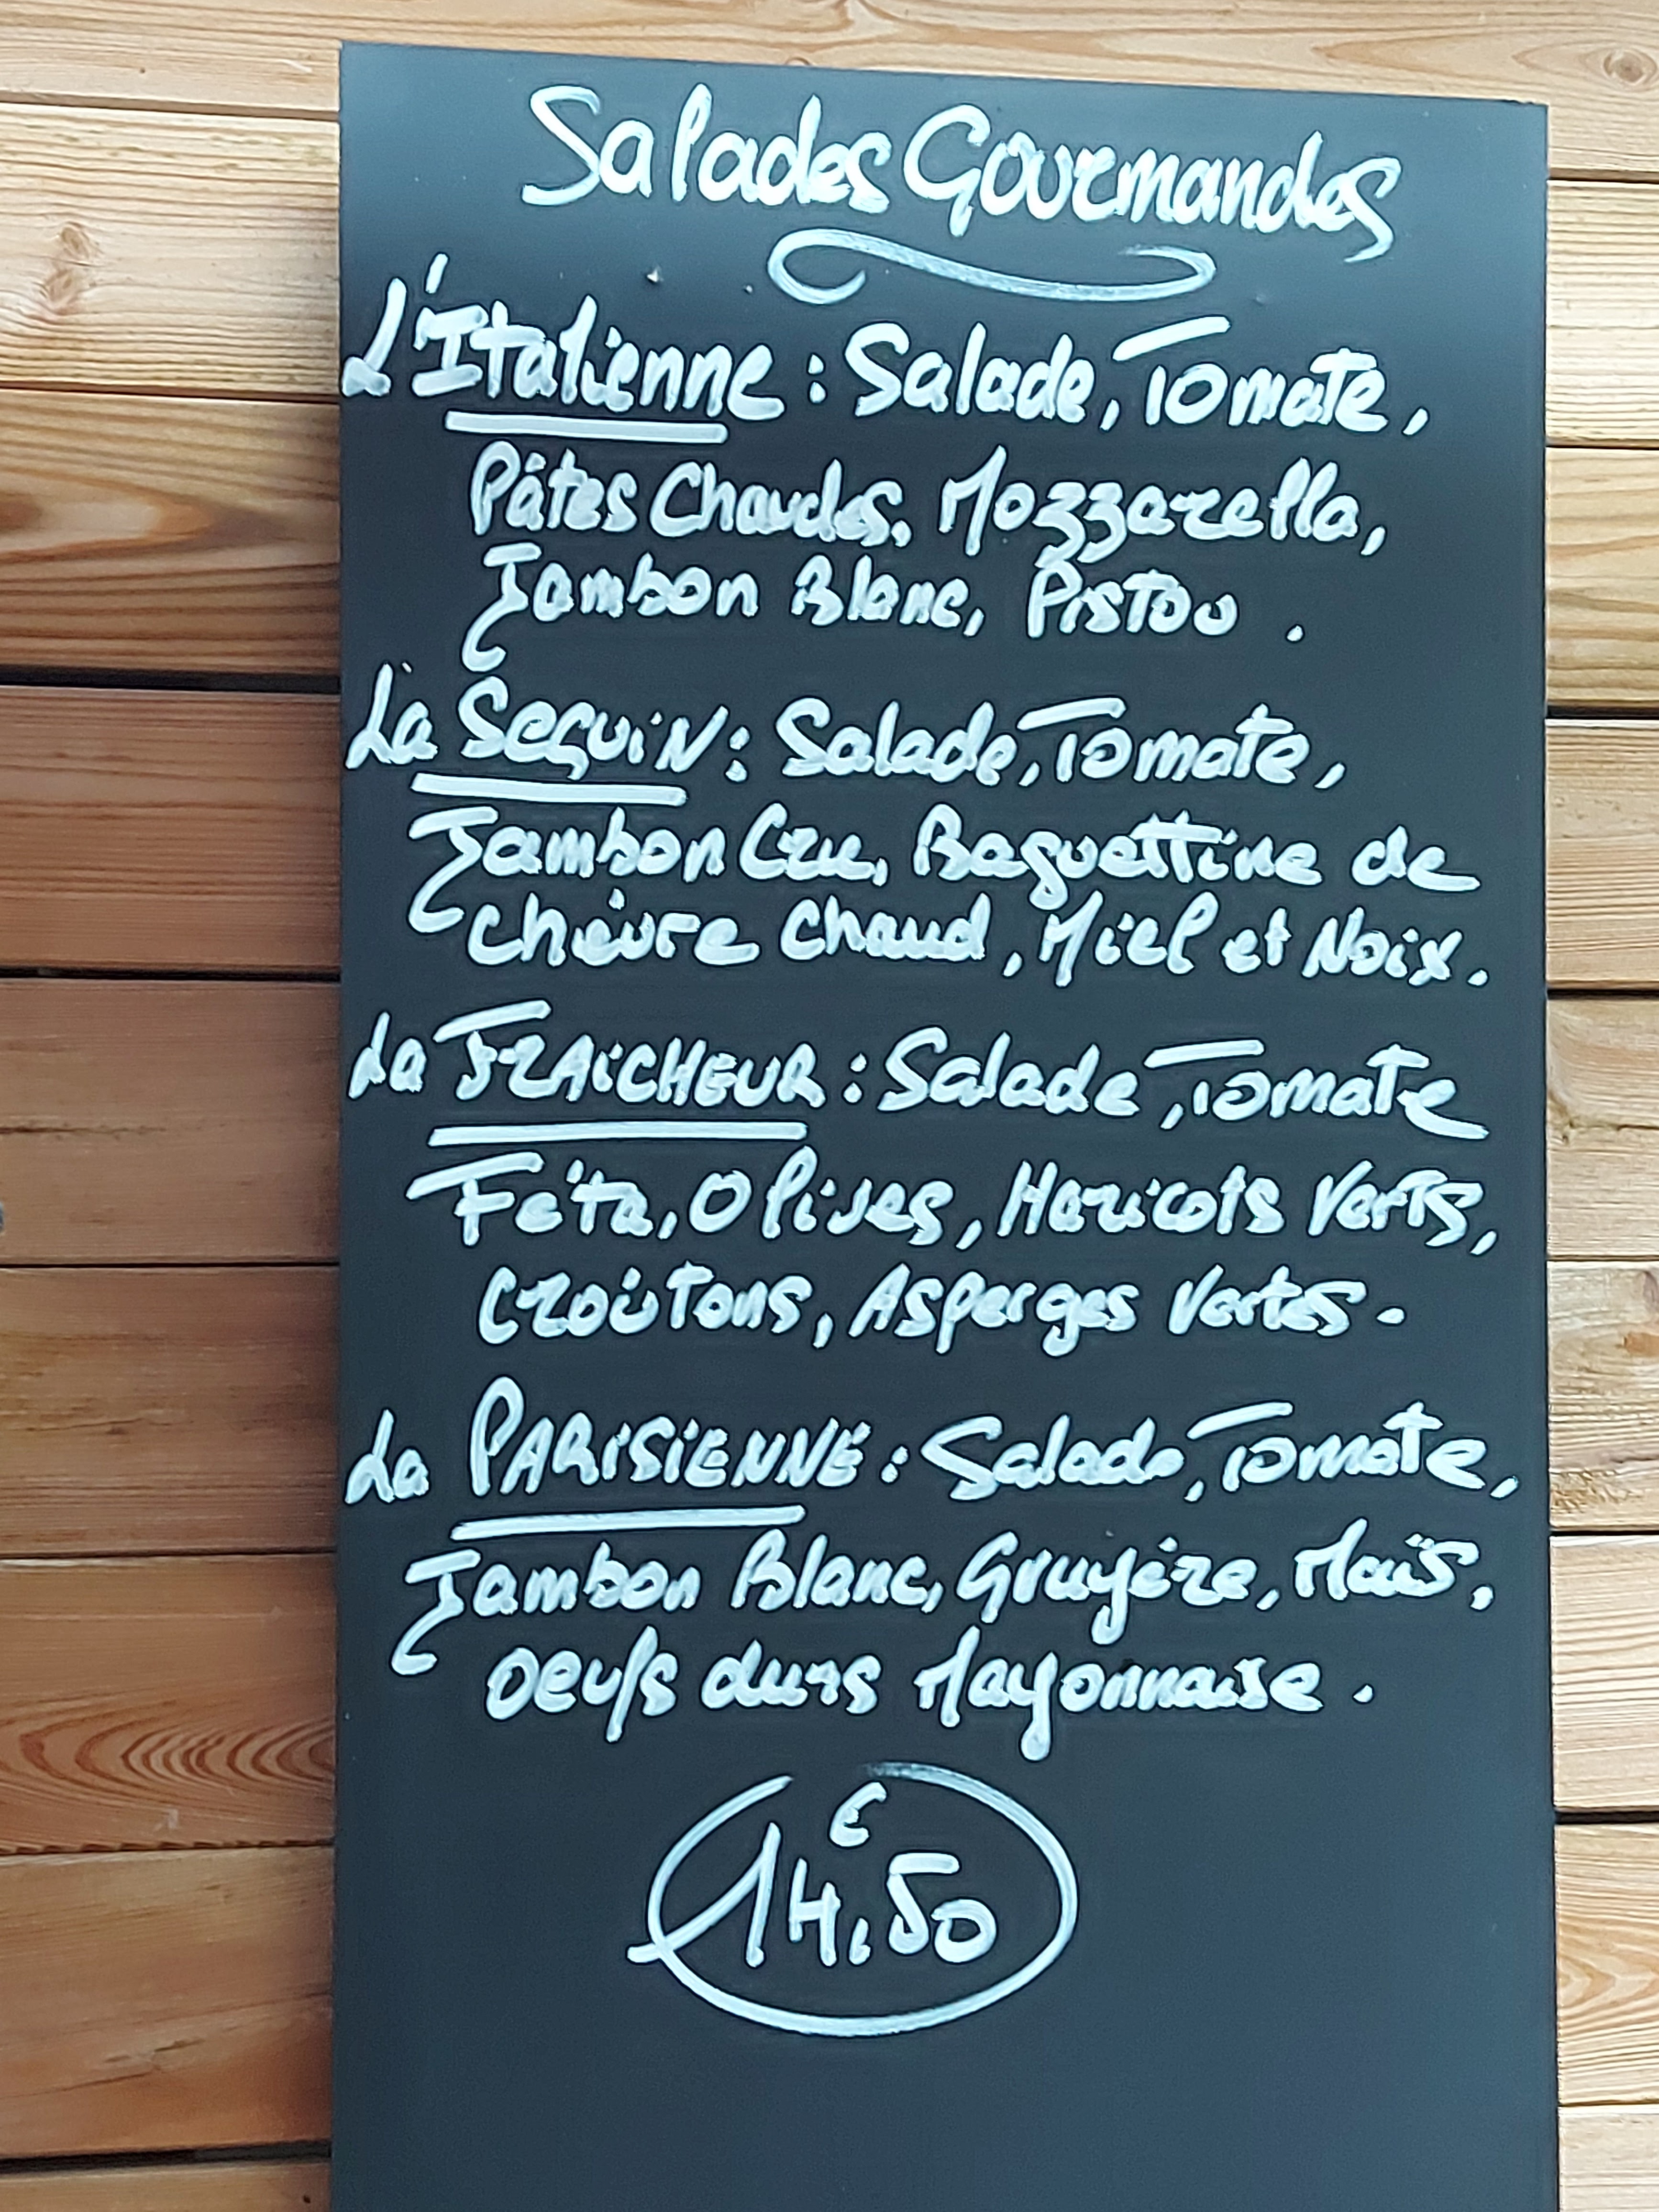 Salades Gourmandes
L'Italienne : Salade, Tomate,
Pâtes Chaudes, Mozzarella,
Jambon Blanc, Pistou .
La Seguin : Salade, Tomate,
Jambon Cru, Baguettine de
chèvre Chaud, Miel et Noix.
La FRAiCHEUR : Salade, Tomate
Féta, Olives, Haricots Verts,
Croûtons, Asperges Vertes.
La PARiSiENNE : Salade, Tomate,
Jambon Blanc, Gruyère, Maïs,
oeufs durs Mayonnaise .
€
14,50